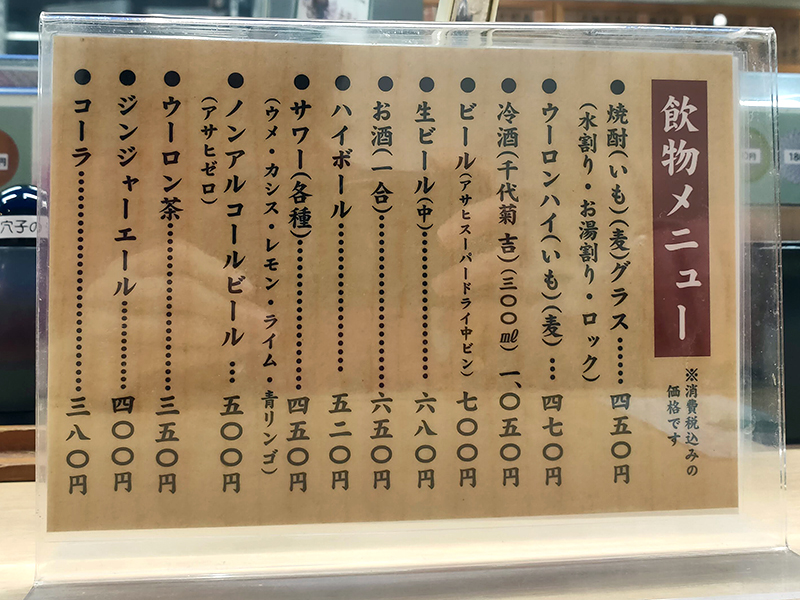 飲物メニュー
※消費税込みの
価格です
●焼酎(いも)(麦)グラス……四五〇円
(水割り・お湯割り・ロック)
●ウーロンハイ(いも)(麦)…四七〇円
●冷酒(千代菊 吉)(三〇〇㎖)一、〇五〇円
●ビール(アサヒスーパードライ中ビン)七〇〇円
●生ビール(中)……………六八〇円
●お酒(一合)………………六五〇円
●ハイボール………………五二〇円
●サワー(各種)……………四五〇円
(ウメ・カシス・レモン・ライム・青リンゴ)
●ノンアルコールビール…五〇〇円
(アサヒゼロ)
●ウーロン茶………………三五〇円
●ジンジャーエール………四〇〇円
●コーラ……………………三八〇円
穴子の
円
180